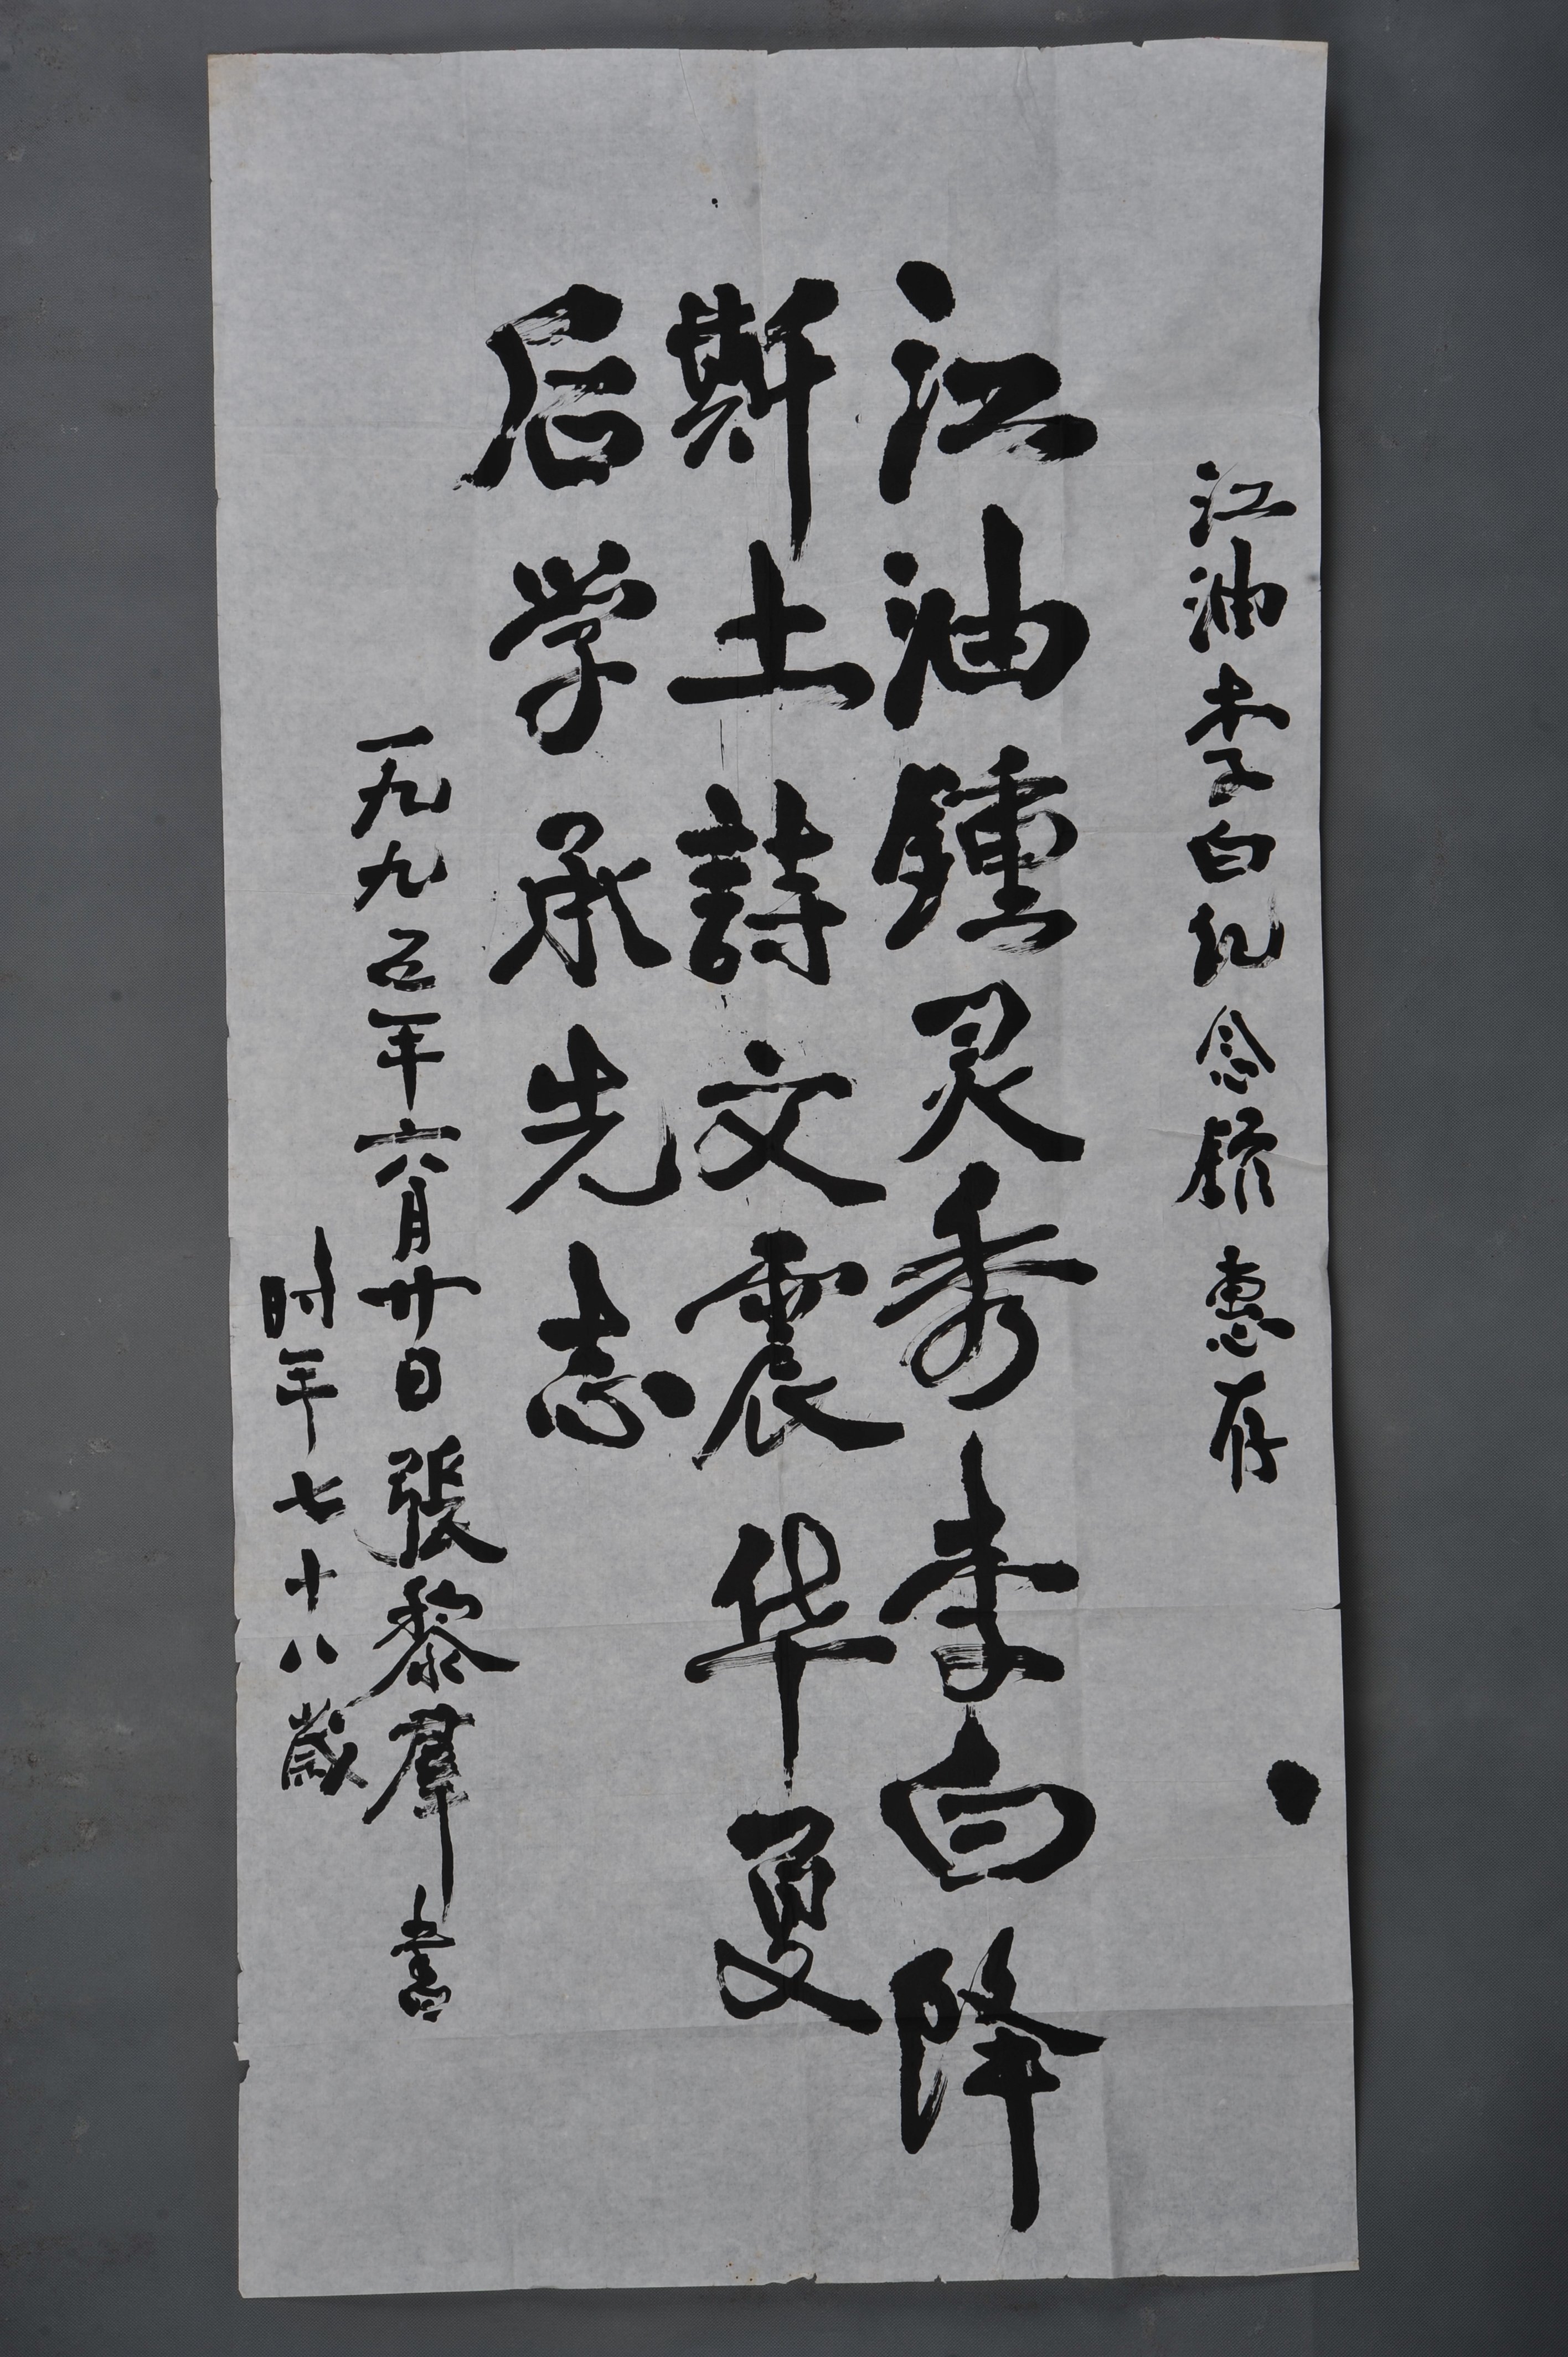 江油李白纪念馆惠存
江油鍾灵秀李白降
斯土詩文震华夏
后学承先志
一九九五年六月廿日張黎羣書
时年七十八歲